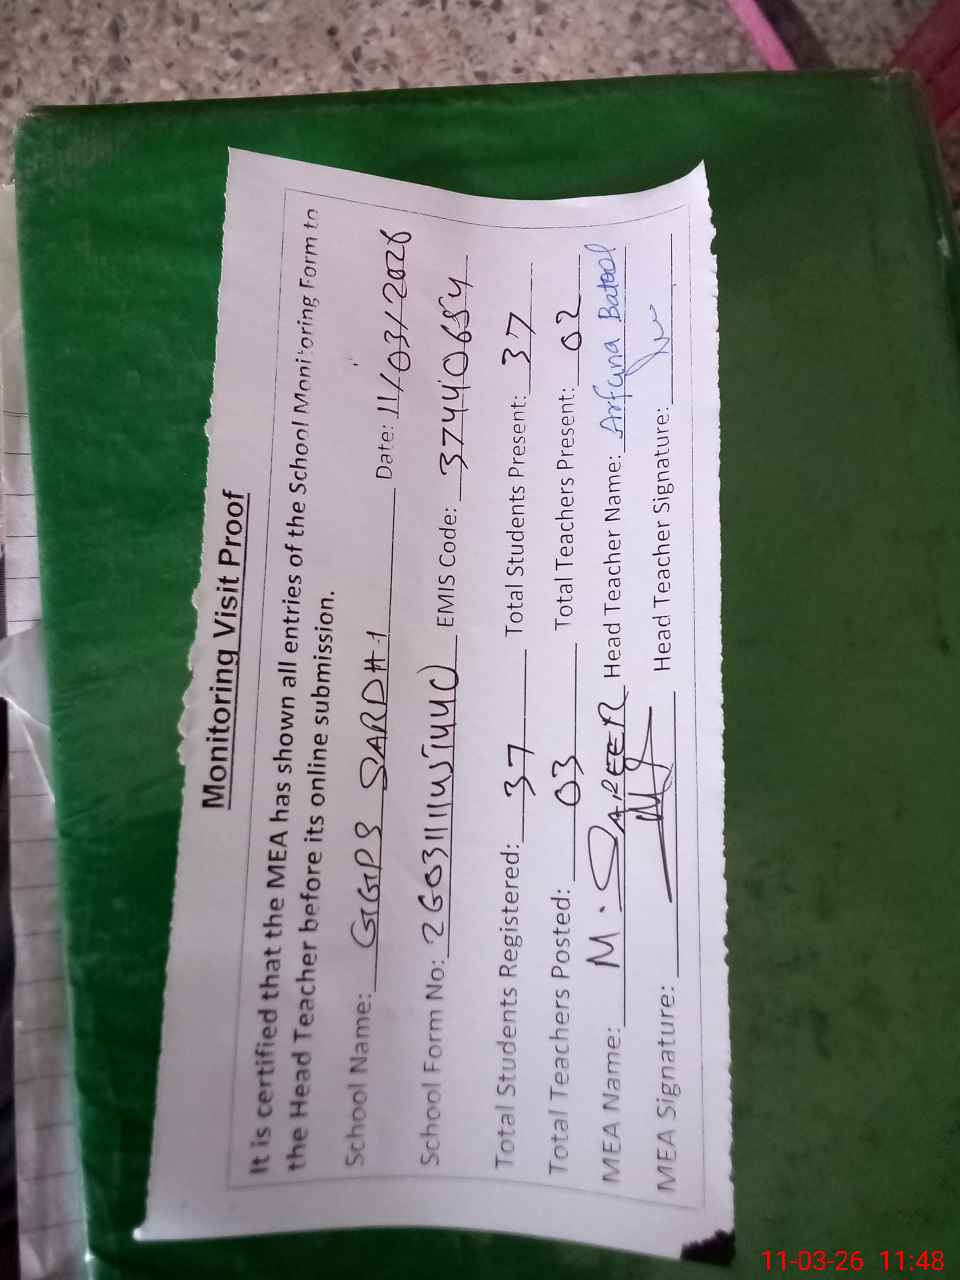 Monitoring Visit Proof
It is certified that the MEA has shown all entries of the School Monitoring Form to
the Head Teacher before its online submission.
School Name: GGPS SARDH-1 Date: 11/03/2026
School Form No: EMIS Code: 37440654
Total Students Registered: 37 Total Students Present: 37
Total Teachers Posted: 03 Total Teachers Present: 02
MEA Name: M. Head Teacher Name: Batool
MEA Signature: Head Teacher Signature:
11-03-26 11:48